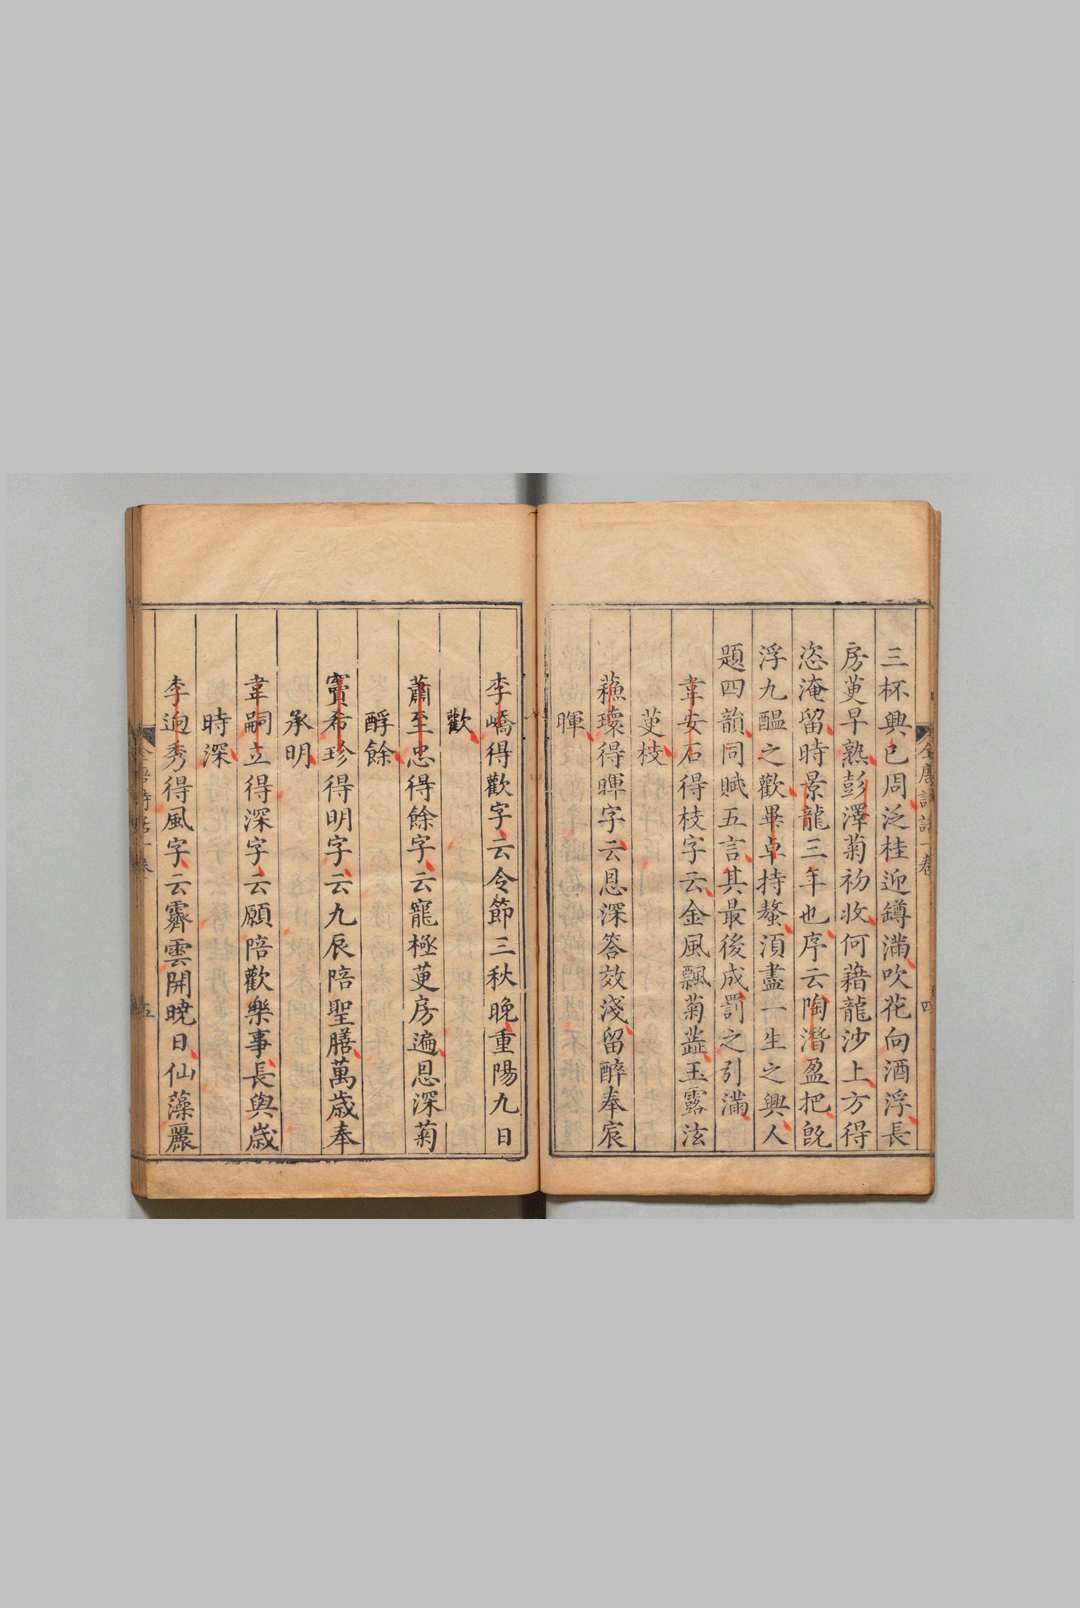 三杯興已周泛桂迎鐏滿吹花向酒浮長
房萸早熟彭澤菊初收何藉龍沙上方得
恣淹留時景龍三年也序云陶潛盈把旣
浮九醞之歡畢卓持螯湏盡一生之興人
題四韻同賦五言其最後成罰之引滿
韋安石得枝字云金風飄菊蕋玉露泫
萸枝
蘓瓌得暉字云恩深答效淺留醉奉宸
暉
李嶠得歡字云令節三秋晚重陽九日
歡
蕭至忠得餘字云寵極萸房遍恩深菊
酹餘
竇希玠得明字云九辰陪聖膳萬歲奉
承明
韋嗣立得深字云願陪歡樂事長與歲
時深
李迥秀得風字云霽雲開曉日仙藻麗
全唐詩話一卷
四
全唐詩話一卷
五